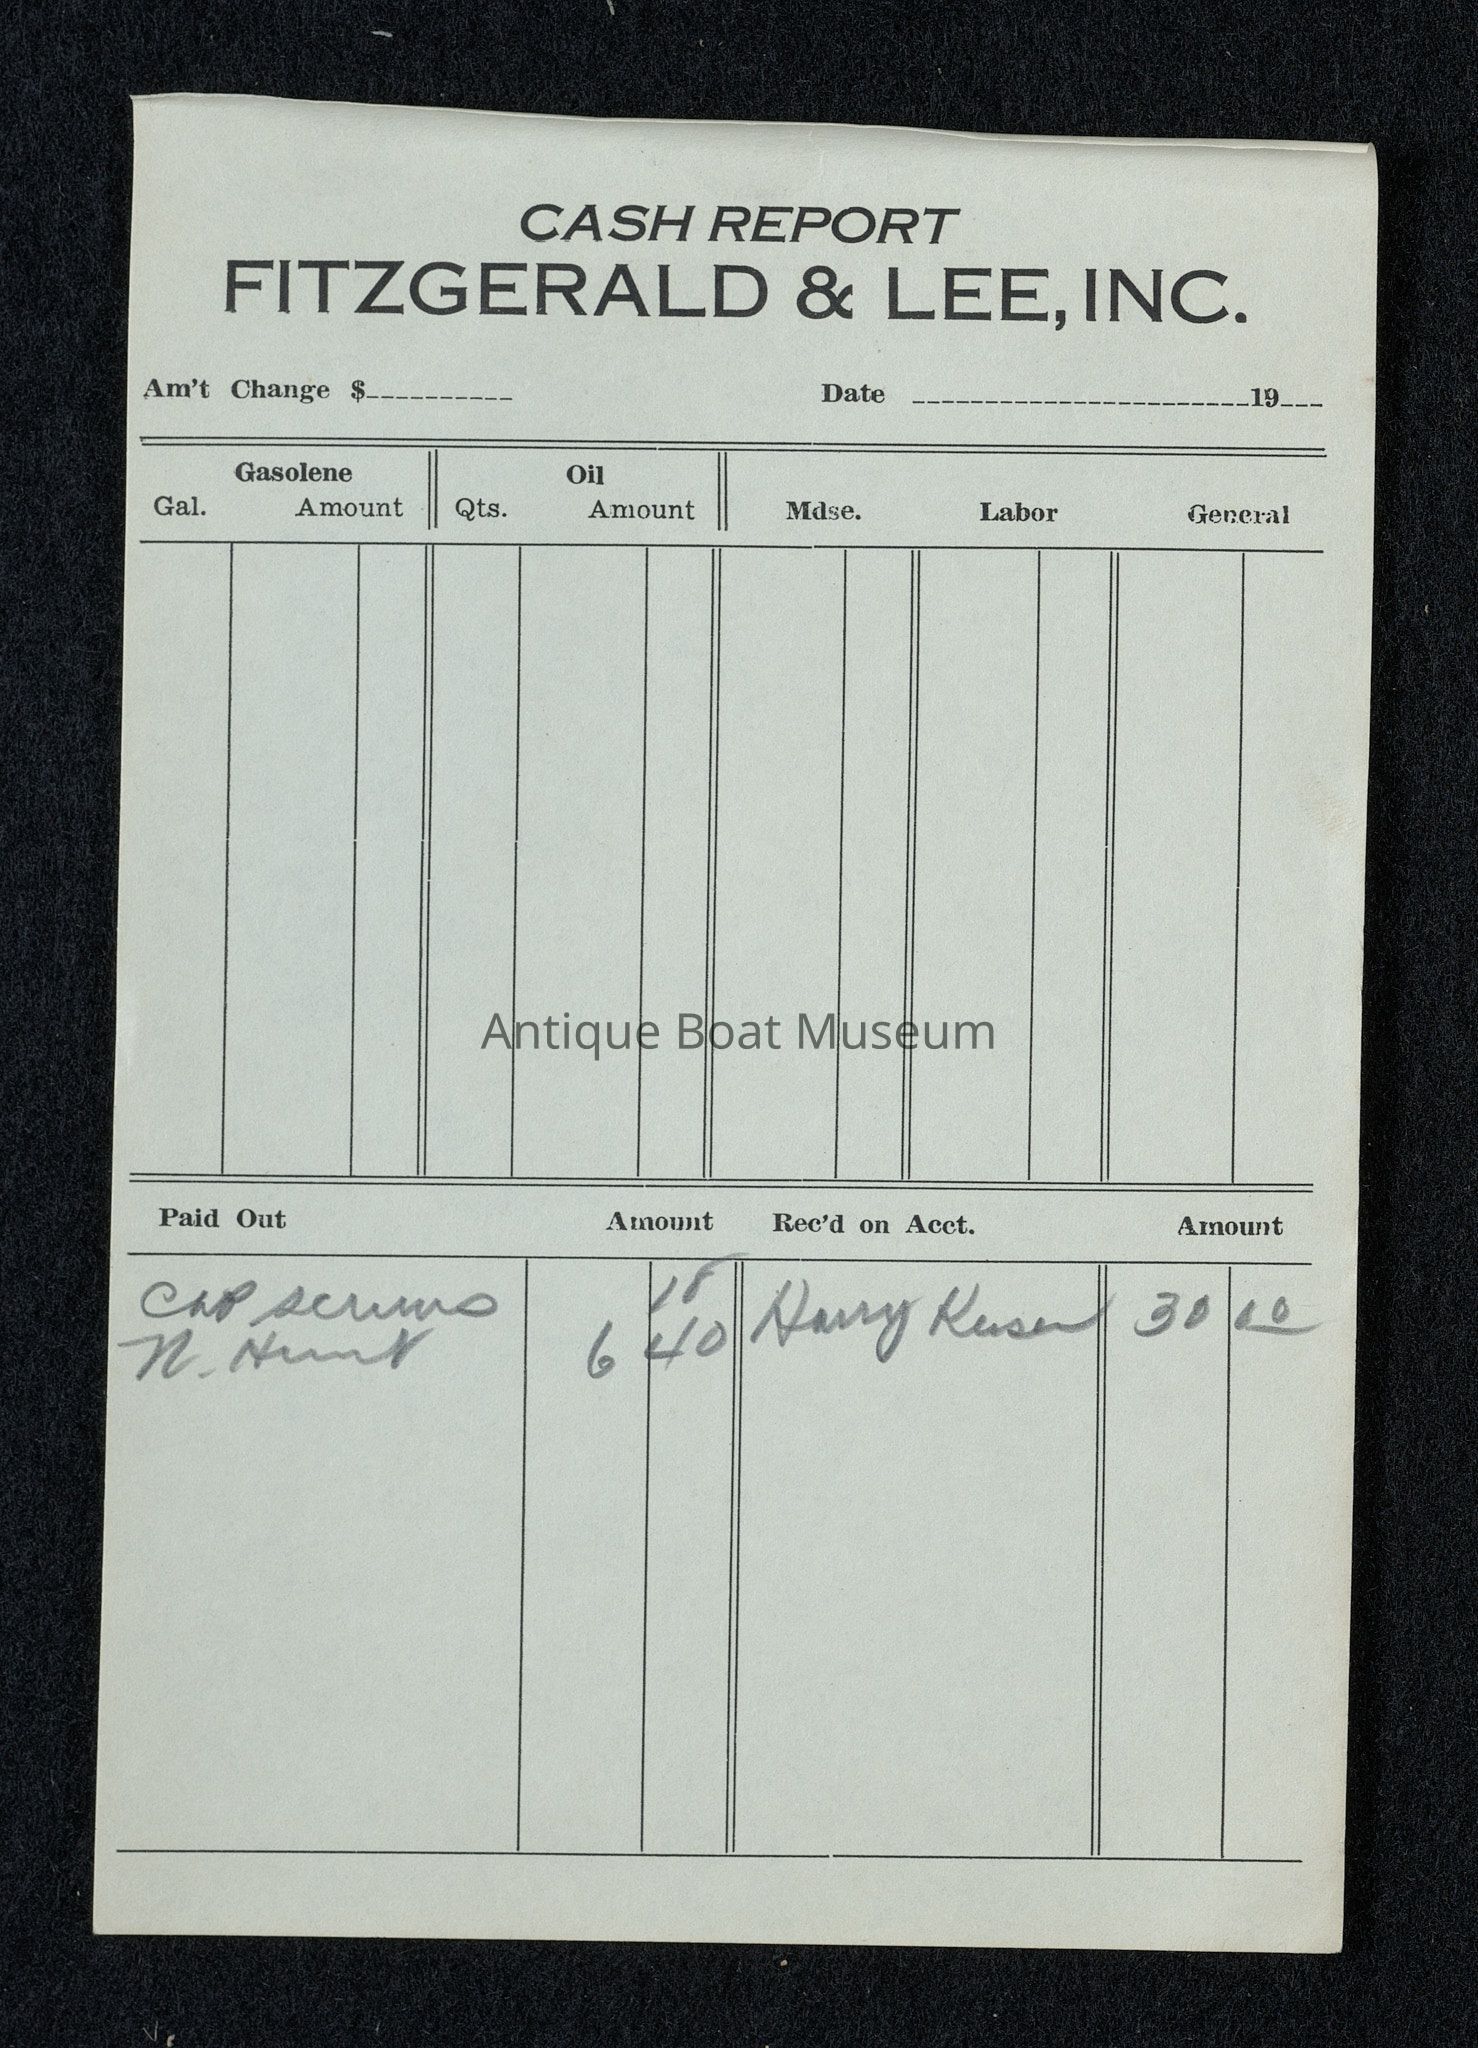 CASH REPORT
FITZGERALD & LEE, INC.
Am't Change $__________ Date ______________________19___
Gasolene Oil
Gal. Amount Qts. Amount Mdse. Labor General
Antique Boat Museum
Paid Out Amount Rec'd on Acct. Amount
Cap screws Harry 30 00
N. Hunt 6 40